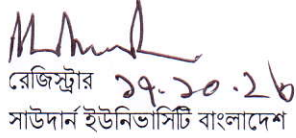 রেজিস্ট্রার ২৭.১০.২৬
সাউদার্ন ইউনিভার্সিটি বাংলাদেশ